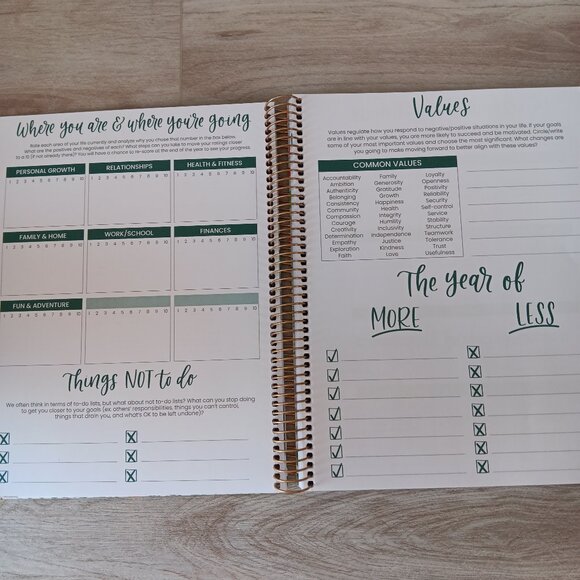 Where you are & where you're going
Rate each area of your life currently and analyze why you chose that number in the box below.
What are the positives and negatives of each? What steps can you take to move your ratings closer
to a 10 (if not already there)? You will have a chance to re-score at the end of the year to see your progress.
PERSONAL GROWTH RELATIONSHIPS HEALTH & FITNESS
1 2 3 4 5 6 7 8 9 10 1 2 3 4 5 6 7 8 9 10 1 2 3 4 5 6 7 8 9 10
FAMILY & HOME WORK/SCHOOL FINANCES
1 2 3 4 5 6 7 8 9 10 1 2 3 4 5 6 7 8 9 10 1 2 3 4 5 6 7 8 9 10
FUN & ADVENTURE
1 2 3 4 5 6 7 8 9 10 1 2 3 4 5 6 7 8 9 10 1 2 3 4 5 6 7 8 9 10
Things NOT to do
We often think in terms of to-do lists, but what about not to-do lists? What can you stop doing
to get you closer to your goals (ex. others' responsibilities, things you can't control,
things that drain you, and what's OK to be left undone)?
Values
Values regulate how you respond to negative/positive situations in your life. If your goals
are in line with your values, you are more likely to succeed and be motivated. Circle/write
some of your most important values and choose the most significant. What changes are
you going to make moving forward to better align with these values?
COMMON VALUES
Accountability Family Loyalty
Ambition Generosity Openness
Authenticity Gratitude Positivity
Belonging Growth Reliability
Consistency Happiness Security
Community Health Self-control
Compassion Integrity Service
Courage Humility Stability
Creativity Inclusivity Structure
Determination Independence Teamwork
Empathy Justice Tolerance
Exploration Kindness Trust
Faith Love Usefulness
The Year of
MORE LESS